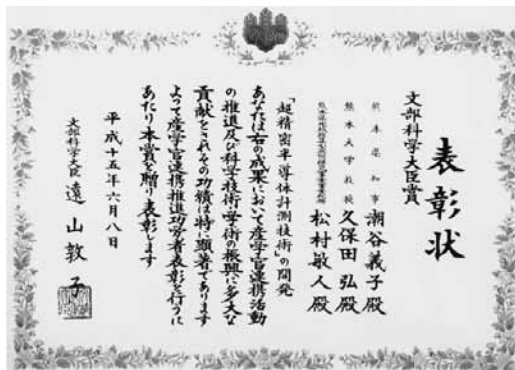 表彰状
文部科学大臣賞
熊本県知事 潮谷義子殿
熊本大学教授 久保田弘殿
松村敏人殿
「超精密半導体計測技術」の開発
あなたは右の成果において産学官連携活動
の推進及び科学技術・学術の振興に多大な
貢献をされその功績は特に顕著であります
よって産学官連携推進功労者表彰を行うに
あたり本賞を贈り表彰します
平成十五年六月八日
文部科学大臣 遠山敦子